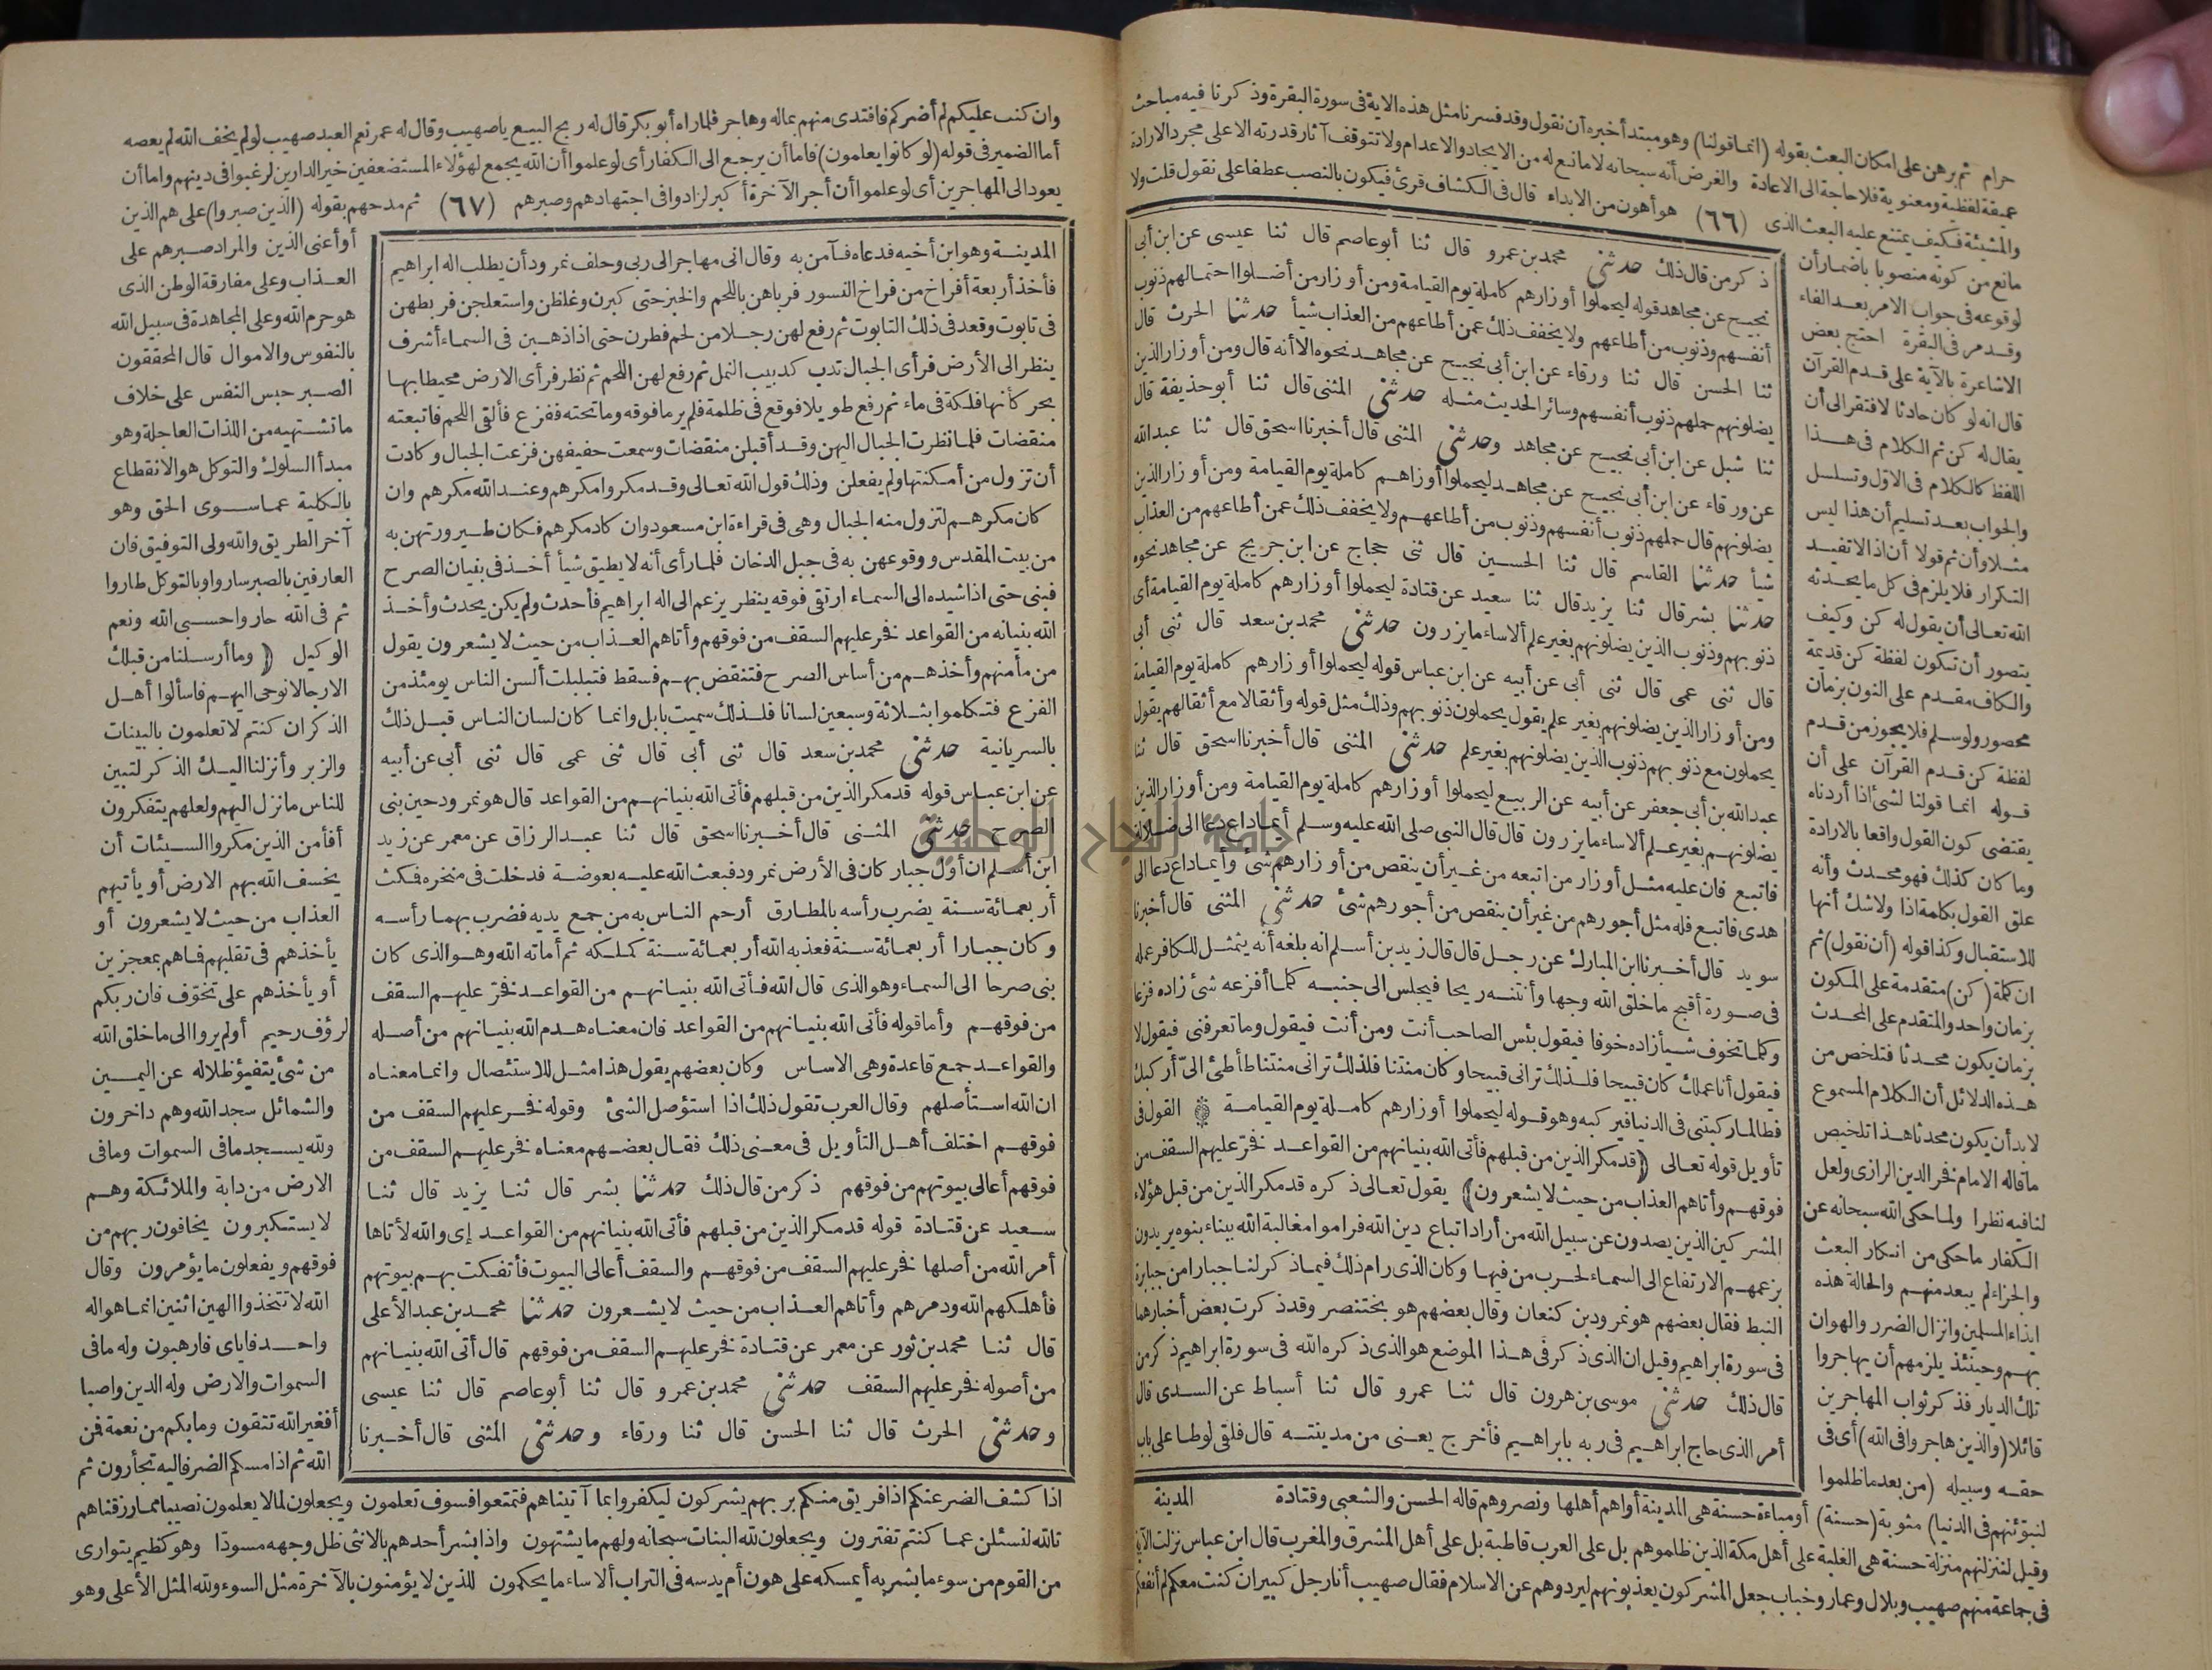 حرام ثم برهن على امكان البعث بقوله (انما قولنا) وهو مبتدأ خبره أن نقول وقد فسرنا مثل هذه الآية فى سورة البقرة وذكرنا فيه مباحث
عميقة لفظية ومعنوية فلا حاجة الى الاعادة والغرض أنه سبحانه لا مانع له من الايجاد والاعدام ولا تتوقف آثار قدرته الا على مجرد الارادة
والمشيئة فكيف يمتنع عليه البعث الذى (٦٦) هو أهون من الابداء قال فى الكشاف قرئ فيكون بالنصب عطفا على نقول قلت ولا
مانع من كونه منصوبا باضمار أن
لوقوعه فى جواب الامر بعد الفاء
وقد مر فى البقرة احتج بعض
الاشاعرة بالآية على قدم القرآن
قال انه لو كان حادثا لافتقر الى أن
يقال له كن ثم الكلام فى هذا
اللفظ كالكلام فى الاول وتسلسل
والجواب بعد تسليم أن هذا ليس
مثلا وأن ثم قولا أن اذا لا تفيد
التكرار فلا يلزم فى كل ما يحدثه
الله تعالى أن يقول له كن وكيف
يتصور أن تكون لفظة كن قديمة
والكاف مقدم على النون بزمان
محصور ولو سلم فلا يجوز من قدم
لفظة كن قدم القرآن على أن
قوله انما قولنا لشئ اذا أردناه
يقتضى كون القول واقعا بالارادة
وما كان كذلك فهو محدث وأنه
علق القول بكلمة اذا ولا شك أنها
للاستقبال وكذا قوله (أن نقول) ثم
ان كلمة (كن) متقدمة على المكون
بزمان واحد والمتقدم على المحدث
بزمان يكون محدثا فتلخص من
هذه الدلائل أن الكلام المسموع
لا بد أن يكون محدثا هذا تلخيص
ما قاله الامام فخر الدين الرازى ولعل
لنا فيه نظرا ولما حكى الله سبحانه عن
الكفار ما حكى من انكار البعث
والجزاء لم يبعد منهم والحالة هذه
ايذاء المسلمين وانزال الضرر والهوان
بهم وحينئذ يلزمهم أن يهاجروا
تلك الديار فذكر ثواب المهاجرين
قائلا (والذين هاجروا فى الله) أى فى
حقه وسبيله (من بعد ما ظلموا
ذكر من قال ذلك حدثنى محمد بن عمرو قال ثنا أبو عاصم قال ثنا عيسى عن ابن أبى
نجيح عن مجاهد قوله ليحملوا أوزارهم كاملة يوم القيامة ومن أوزار من أضلوا احتمالهم ذنوب
أنفسهم وذنوب من أطاعهم ولا يخفف ذلك عمن أطاعهم من العذاب شيأ حدثنا الحرث قال
ثنا الحسن قال ثنا ورقاء عن ابن أبى نجيح عن مجاهد نحوه الا أنه قال ومن أوزار الذين
يضلونهم حملهم ذنوب أنفسهم وسائر الحديث مثله حدثنى المثنى قال ثنا أبو حذيفة قال
ثنا شبل عن ابن أبى نجيح عن مجاهد وحدثنى المثنى قال أخبرنا اسحق قال ثنا عبد الله
عن ورقاء عن ابن أبى نجيح عن مجاهد ليحملوا أوزاهم كاملة يوم القيامة ومن أوزار الذين
يضلونهم قال حملهم ذنوب أنفسهم وذنوب من أطاعهم ولا يخفف ذلك عمن أطاعهم من العذاب
شيأ حدثنا القاسم قال ثنا الحسين قال ثنى حجاج عن ابن جريج عن مجاهد نحوه
حدثنا بشر قال ثنا يزيد قال ثنا سعيد عن قتادة ليحملوا أوزارهم كاملة يوم القيامة أى
ذنوبهم وذنوب الذين يضلونهم بغير علم ألا ساء ما يزرون حدثنى محمد بن سعد قال ثنى أبى
قال ثنى عمى قال ثنى أبى عن أبيه عن ابن عباس قوله ليحملوا أوزارهم كاملة يوم القيامة
ومن أوزار الذين يضلونهم بغير علم يقول يحملون ذنوبهم وذلك مثل قوله وأثقالا مع أثقالهم يقول
يحملون مع ذنوبهم ذنوب الذين يضلونهم بغير علم حدثنى المثنى قال أخبرنا اسحق قال ثنا
عبد الله بن أبى جعفر عن أبيه عن الربيع ليحملوا أوزارهم كاملة يوم القيامة ومن أوزار الذين
يضلونهم بغير علم ألا ساء ما يزرون قال قال النبى صلى الله عليه وسلم أيما داع دعا الى ضلالة
فاتبع فان عليه مثل أوزار من اتبعه من غير أن ينقص من أوزارهم شئ وأيما داع دعا الى
هدى فاتبع فله مثل أجورهم من غير أن ينقص من أجورهم شئ حدثنى المثنى قال أخبرنا
سويد قال أخبرنا ابن المبارك عن رجل قال قال زيد بن أسلم انه بلغه أنه يتمثل للكافر عمله
فى صورة أقبح ما خلق الله وجها وأنتنه ريحا فيجلس الى جنبه كلما أفزعه شئ زاده فزعا
وكلما تخوف شيأ زاده خوفا فيقول بئس الصاحب أنت ومن أنت فيقول وما تعرفنى فيقول لا
فيقول أنا عملك كان قبيحا فلذلك ترانى قبيحا وكان منتنا فلذلك ترانى منتنا طأطئ الىّ أركبك
فطالما ركبتنى فى الدنيا فيركبه وهو قوله ليحملوا أوزارهم كاملة يوم القيامة ۞ القول فى
تأويل قوله تعالى (قد مكر الذين من قبلهم فأتى الله بنيانهم من القواعد فخرّ عليهم السقف من
فوقهم وأتاهم العذاب من حيث لا يشعرون) يقول تعالى ذكره قد مكر الذين من قبل هؤلاء
المشركين الذين يصدون عن سبيل الله من أراد اتباع دين الله فراموا مغالبة الله ببناء بنوه يريدون
بزعمهم الارتفاع الى السماء لحرب من فيها وكان الذى رام ذلك فيما ذكر لنا جبارا من جبابرة
النبط فقال بعضهم هو نمرود بن كنعان وقال بعضهم هو بختنصر وقد ذكرت بعض أخبارهما
فى سورة ابراهيم وقيل ان الذى ذكر فى هذا الموضع هو الذى ذكره الله فى سورة ابراهيم ذكر من
قال ذلك حدثنى موسى بن هرون قال ثنا عمرو قال ثنا أسباط عن السدى قال
أمر الذى حاج ابراهيم فى ربه بابراهيم فأخرج يعنى من مدينته قال فلقى لوطا على باب
المدينة
لنبوئنهم فى الدنيا) مثوبة (حسنة) أو مباءة حسنة هى المدينة أواهم أهلها ونصروهم قاله الحسن والشعبى وقتادة
وقيل لننزلنهم منزلة حسنة هى الغلبة على أهل مكة الذين ظلموهم بل على العرب قاطبة بل على أهل المشرق والمغرب قال ابن عباس نزلت الآية
فى جماعة منهم صهيب وبلال وعمار وخباب جعل المشركون يعذبونهم ليردوهم عن الاسلام فقال صهيب أنا رجل كبير ان كنت معكم لم أنفعكم
وان كنت عليكم لم أضركم فافتدى منهم بماله وهاجر فلما رآه أبو بكر قال له ربح البيع يا صهيب وقال له عمر نعم العبد صهيب لو لم يخف الله لم يعصه
أما الضمير فى قوله (لو كانوا يعلمون) فاما أن يرجع الى الكفار أى لو علموا أن الله يجمع لهؤلاء المستضعفين خير الدارين لرغبوا فى دينهم واما أن
يعود الى المهاجرين أى لو علموا أن أجر الآخرة أكبر لزادوا فى اجتهادهم وصبرهم (٦٧) ثم مدحهم بقوله (الذين صبروا) على هم الذين
أو أعنى الذين والمراد صبرهم على
العذاب وعلى مفارقة الوطن الذى
هو حرم الله وعلى المجاهدة فى سبيل الله
بالنفوس والاموال قال المحققون
الصبر حبس النفس على خلاف
ما تشتهيه من اللذات العاجلة وهو
مبدأ السلوك والتوكل هو الانقطاع
بالكلية عما سوى الحق وهو
آخر الطريق والله ولى التوفيق فان
العارفين بالصبر ساروا وبالتوكل طاروا
ثم فى الله حاروا حسبى الله ونعم
الوكيل (وما أرسلنا من قبلك
الا رجالا نوحى اليهم فاسألوا أهل
الذكر ان كنتم لا تعلمون بالبينات
والزبر وأنزلنا اليك الذكر لتبين
للناس ما نزل اليهم ولعلهم يتفكرون
أفأمن الذين مكروا السيئات أن
يخسف الله بهم الارض أو يأتيهم
العذاب من حيث لا يشعرون أو
يأخذهم فى تقلبهم فما هم بمعجزين
أو يأخذهم على تخوّف فان ربكم
لرؤف رحيم أولم يروا الى ما خلق الله
من شئ يتفيؤ ظلاله عن اليمين
والشمائل سجد الله وهم داخرون
ولله يسجد ما فى السموات وما فى
الارض من دابة والملائكة وهم
لا يستكبرون يخافون ربهم من
فوقهم ويفعلون ما يؤمرون وقال
الله لا تتخذوا الهين اثنين انما هو اله
واحد فاياى فارهبون وله ما فى
السموات والارض وله الدين واصبا
أفغير الله تتقون وما بكم من نعمة فمن
الله ثم اذا مسكم الضر فاليه تجأرون ثم
المدينة وهو ابن أخيه فدعاه فآمن به وقال انى مهاجر الى ربى وحلف نمرود أن يطلب اله ابراهيم
فأخذ أربعة أفراخ من فراخ النسور فرباهن باللحم والخبز حتى كبرن وغلظن واستعلجن فربطهن
فى تابوت وقعد فى ذلك التابوت ثم رفع لهن رجلا من لحم فطرن حتى اذا ذهبن فى السماء أشرف
ينظر الى الأرض فرأى الجبال تدب كدبيب النمل ثم رفع لهن اللحم ثم نظر فرأى الارض محيطا بها
بحر كأنها فلكة فى ماء ثم رفع طويلا فوقع فى ظلمة فلم ير ما فوقه وما تحته ففزع فألقى اللحم فاتبعته
منقضات فلما نظرت الجبال اليهن وقد أقبلن منقضات وسمعت حفيفهن فزعت الجبال وكادت
أن تزول من أمكنتها ولم يفعلن وذلك قول الله تعالى وقد مكروا مكرهم وعند الله مكرهم وان
كان مكرهم لتزول منه الجبال وهى فى قراءة ابن مسعود وان كاد مكرهم فكان طيرورتهن به
من بيت المقدس ووقوعهن به فى جبل الدخان فلما رأى أنه لا يطيق شيأ أخذ فى بنيان الصرح
فبنى حتى اذا شيده الى السماء ارتقى فوقه ينظر يزعم الى اله ابراهيم فأحدث ولم يكن يحدث وأخذ
الله بنيانه من القواعد فخر عليهم السقف من فوقهم وأتاهم العذاب من حيث لا يشعرون يقول
من مأمنهم وأخذهم من أساس الصرح فتنقض بهم فسقط فتبلبلت ألسن الناس يومئذ من
الفزع فتكلموا بثلاثة وسبعين لسانا فلذلك سميت بابل وانما كان لسان الناس قبل ذلك
بالسريانية حدثنى محمد بن سعد قال ثنى أبى قال ثنى عمى قال ثنى أبى عن أبيه
عن ابن عباس قوله قد مكر الذين من قبلهم فأتى الله بنيانهم من القواعد قال هو نمرود حين بنى
الصرح حدثنى المثنى قال أخبرنا اسحق قال ثنا عبد الرزاق عن معمر عن زيد
ابن أسلم ان أول جبار كان فى الأرض نمرود فبعث الله عليه بعوضة فدخلت فى منخره فمكث
أربعمائة سنة يضرب رأسه بالمطارق أرحم الناس به من جمع يديه فضرب بهما رأسه
وكان جبارا أربعمائة سنة فعذبه الله أربعمائة سنة كملكه ثم أماته الله وهو الذى كان
بنى صرحا الى السماء وهو الذى قال الله فأتى الله بنيانهم من القواعد فخرّ عليهم السقف
من فوقهم وأما قوله فأتى الله بنيانهم من القواعد فان معناه هدم الله بنيانهم من أصله
والقواعد جمع قاعدة وهى الاساس وكان بعضهم يقول هذا مثل للاستئصال وانما معناه
ان الله استأصلهم وقال العرب تقول ذلك اذا استؤصل الشئ وقوله فخر عليهم السقف من
فوقهم اختلف أهل التأويل فى معنى ذلك فقال بعضهم معناه فخر عليهم السقف من
فوقهم أعالى بيوتهم من فوقهم ذكر من قال ذلك حدثنا بشر قال ثنا يزيد قال ثنا
سعيد عن قتادة قوله قد مكر الذين من قبلهم فأتى الله بنيانهم من القواعد إى والله لأتاها
أمر الله من أصلها فخر عليهم السقف من فوقهم والسقف أعالى البيوت فأتفكت بهم بيوتهم
فأهلكهم الله ودمرهم وأتاهم العذاب من حيث لا يشعرون حدثنا محمد بن عبد الأعلى
قال ثنا محمد بن ثور عن معمر عن قتادة فخر عليهم السقف من فوقهم قال أتى الله بنيانهم
من أصوله فخر عليهم السقف حدثنى محمد بن عمرو قال ثنا أبو عاصم قال ثنا عيسى
وحدثنى الحرث قال ثنا الحسن قال ثنا ورقاء وحدثنى المثنى قال أخبرنا
اذا كشف الضر عنكم اذا فريق منكم بربهم يشركون ليكفروا بما آتيناهم فتمتعوا فسوف تعلمون ويجعلون لما لا يعلمون نصيبا مما رزقناهم
تالله لتسئلن عما كنتم تفترون ويجعلون لله البنات سبحانه ولهم ما يشتهون واذا بشر أحدهم بالانثى ظل وجهه مسودا وهو كظيم يتوارى
من القوم من سوء ما بشر به أيمسكه على هون أم يدسه فى التراب ألا ساء ما يحكمون للذين لا يؤمنون بالآخرة مثل السوء ولله المثل الأعلى وهو
جامعة النجاح الوطنية